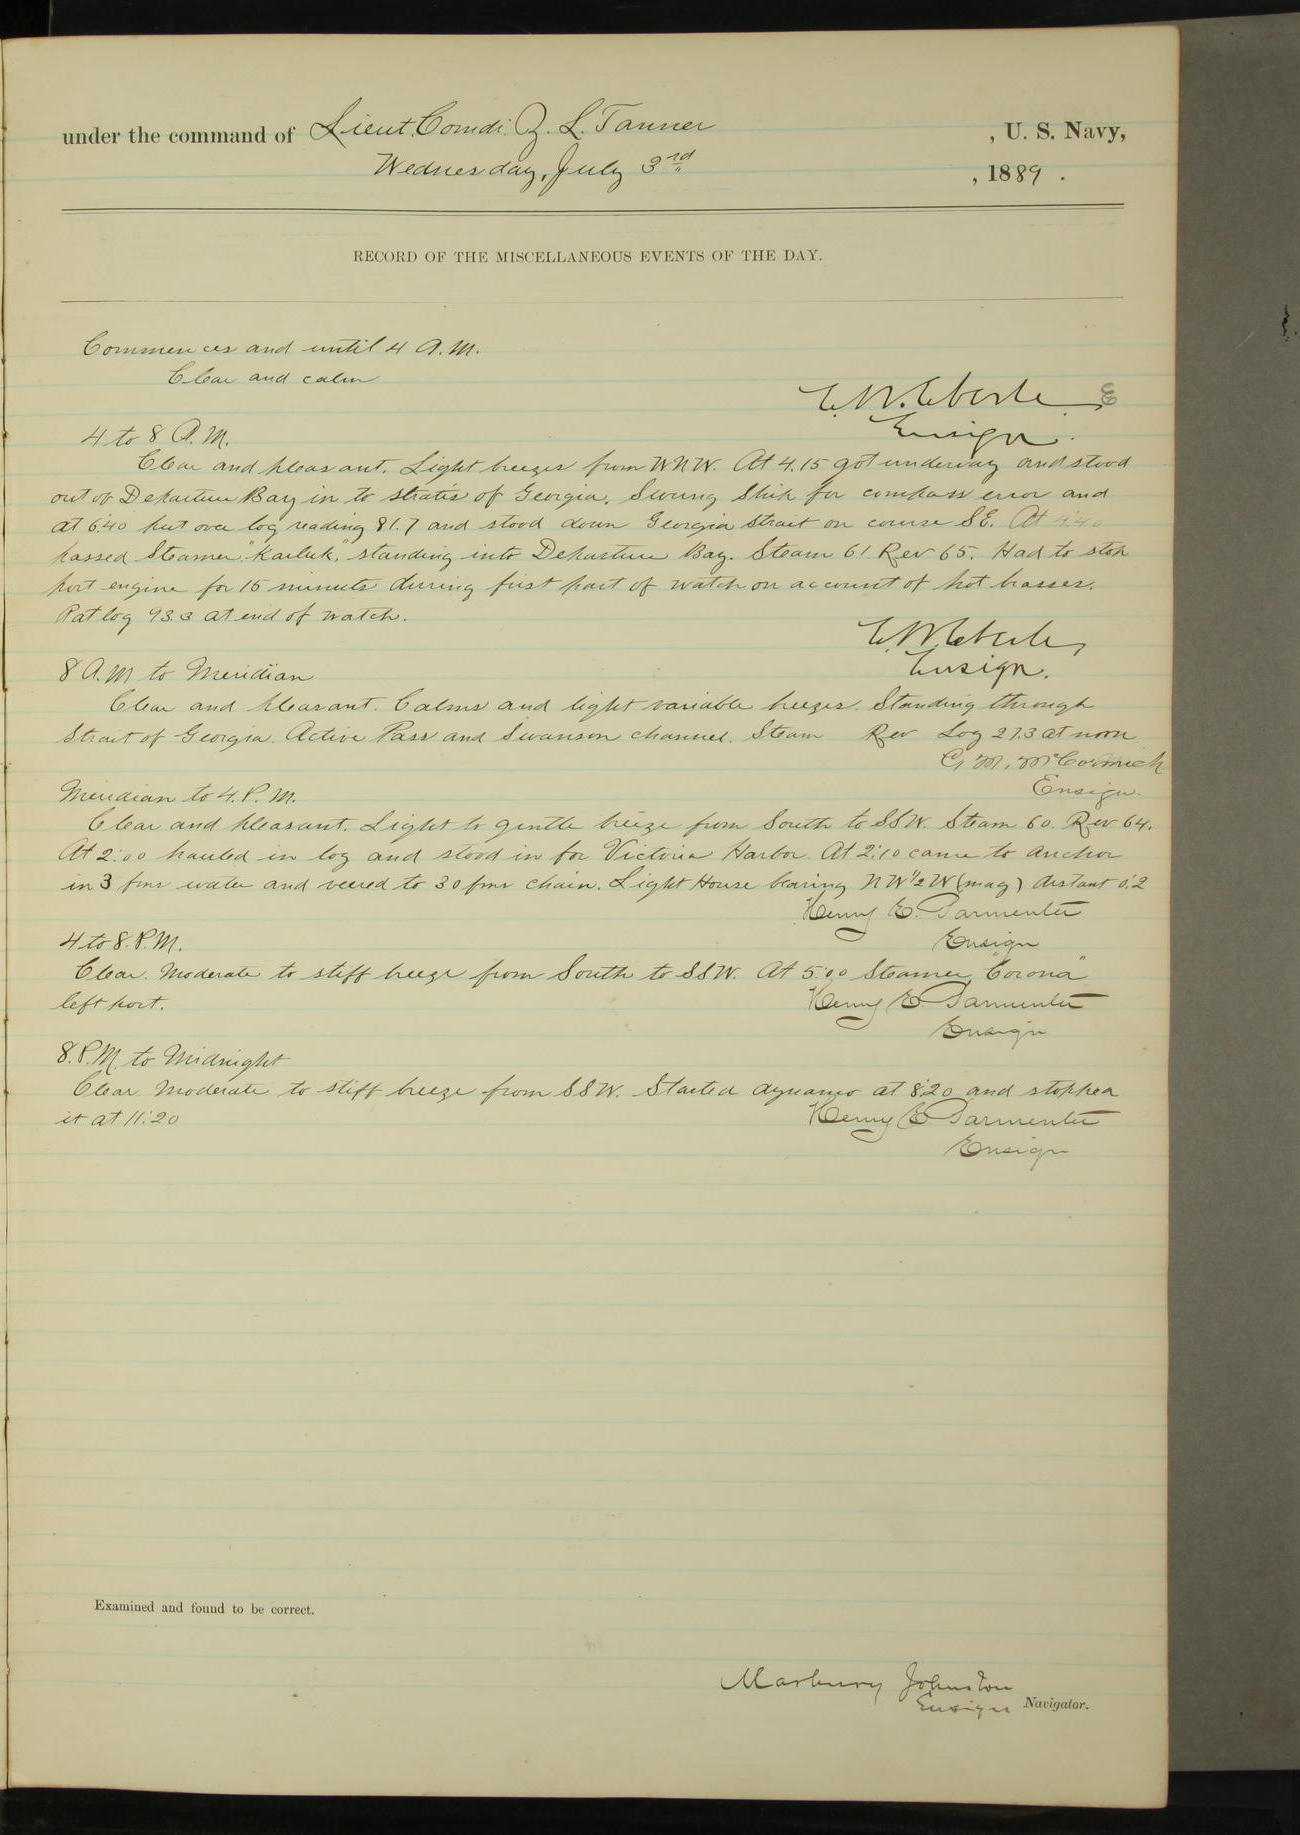 under the command of Lieut. Comdr. Z. L. Tanner, U. S. Navy,
Wednesday, July 3rd, 1889.
RECORD OF THE MISCELLANEOUS EVENTS OF THE DAY.
Commences and until 4 A.M.
Clear and calm
E. W. Eberle
Ensign.
4 to 8 A.M.
Clear and pleasant. Light breezes from WNW. At 4.15 got underway and stood
out of Departure Bay in to straits of Georgia. Swung Ship for compass error and
at 6:40 put over log reading 81.7 and stood down Georgia Strait on course SE. At 4:40
passed Steamer "Karluk," standing into Departure Bay. Steam 61. Rev 65. Had to stop
port engine for 15 minuts during first part of watch on account of hot brasses.
Pat log 93.3 at end of watch.
E. W. Eberle,
Ensign.
8 A.M to Meridian
Clear and pleasant. Calms and light variable breezes. Standing through
Strait of Georgia. Active Pass and Swanson channel. Steam Rev Log 27.3 at noon
G. M. McCormick
Ensign.
Meridian to 4. P. M.
Clear and pleasant. Light to gentle breeze from South to SSW. Steam 60. Rev 64.
At 2:00 hauled in log and stood in for Victoria Harbor. At 2:10 came to anchor
in 3 fms water and veered to 30 fms chain. Light House bearing NW 1/2 W (mag) distant 0.'2
Henry E. Parmenter
Ensign
4 to 8. P.M.
Clear. Moderate to stiff breeze from South to SSW. At 5:00 Steamer "Corona"
left port.
Henry E. Parmenter
Ensign
8. P.M. to Midnight
Clear Moderate to stiff breeze from SSW. Started dynamo at 8:20 and stopped
it at 11:20
Henry E Parmenter
Ensign
Examined and found to be correct.
Marbury Johnston
Ensign Navigator.